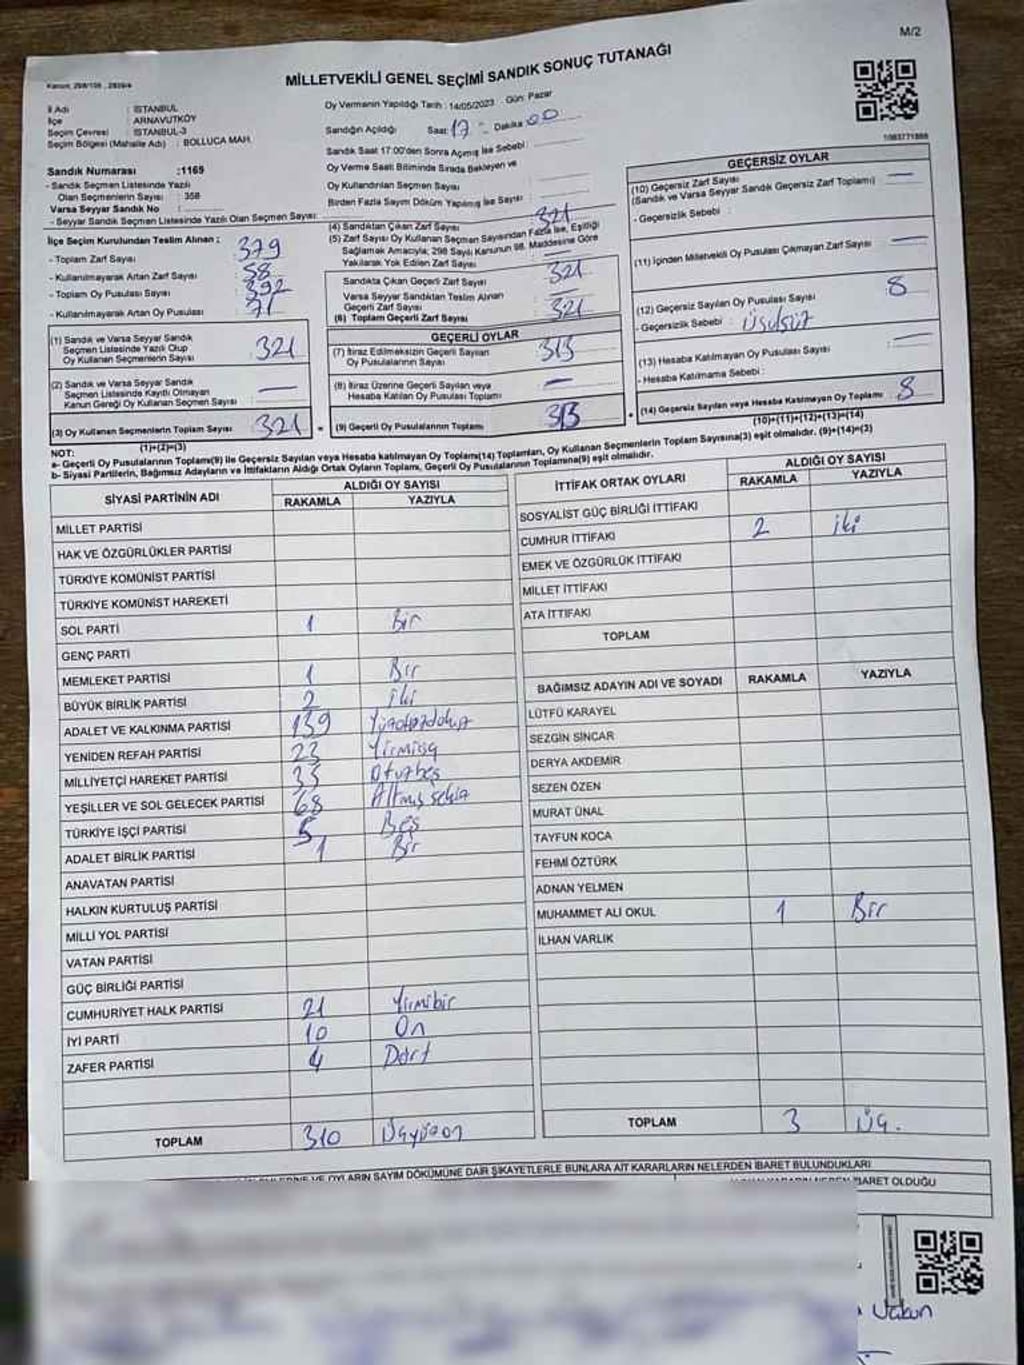 M/2
MİLLETVEKİLİ GENEL SEÇİMİ SANDIK SONUÇ TUTANAĞI
İl Adı : İSTANBUL
İlçe : ARNAVUTKÖY
Seçim Çevresi : İSTANBUL-3
Seçim Bölgesi (Mahalle Adı) : BOLLUCA MAH.
Sandık Numarası :1169
- Sandık Seçmen Listesinde Yazılı
Olan Seçmenlerin Sayısı : 358
Varsa Seyyar Sandık No :
- Seyyar Sandık Seçmen Listesinde Yazılı Olan Seçmen Sayısı:
Oy Vermenin Yapıldığı Tarih : 14/05/2023 Gün: Pazar
Sandığın Açıldığı Saat: 17 Dakika 00
Sandık Saat 17:00'den Sonra Açmış İse Sebebi :
Oy Verme Saati Bitiminde Sırada Bekleyen ve
Oy Kullandırılan Seçmen Sayısı :
Birden Fazla Sayım Döküm Yapılmış İse Sayısı :
İlçe Seçim Kurulundan Teslim Alınan :
- Toplam Zarf Sayısı : 379
- Kullanılmayarak Artan Zarf Sayısı : 58
- Toplam Oy Pusulası Sayısı : 392
- Kullanılmayarak Artan Oy Pusulası : 71
(1) Sandık ve Varsa Seyyar Sandık
Seçmen Listesinde Yazılı Olup
Oy Kullanan Seçmenlerin Sayısı : 321
(2) Sandık ve Varsa Seyyar Sandık
Seçmen Listesinde Kayıtlı Olmayan
Kanun Gereği Oy Kullanan Seçmen Sayısı : —
(3) Oy Kullanan Seçmenlerin Toplam Sayısı 321
(1)+(2)=(3)
(4) Sandıktan Çıkan Zarf Sayısı 321
(5) Zarf Sayısı Oy Kullanan Seçmen Sayısından Fazla İse, Eşitliği
Sağlamak Amacıyla; 298 Sayılı Kanunun 98. Maddesine Göre
Yakılarak Yok Edilen Zarf Sayısı
Sandıkta Çıkan Geçerli Zarf Sayısı : 321
Varsa Seyyar Sandıktan Teslim Alınan
Geçerli Zarf Sayısı
(6) Toplam Geçerli Zarf Sayısı : 321
GEÇERLİ OYLAR
(7) İtiraz Edilmeksizin Geçerli Sayılan
Oy Pusulalarının Sayısı 313
(8) İtiraz Üzerine Geçerli Sayılan veya
Hesaba Katılan Oy Pusulası Toplamı —
(9) Geçerli Oy Pusulalarının Toplamı 313
GEÇERSİZ OYLAR
(10) Geçersiz Zarf Sayısı
(Sandık ve Varsa Seyyar Sandık Geçersiz Zarf Toplamı) —
- Geçersizlik Sebebi :
(11) İçinden Milletvekili Oy Pusulası Çıkmayan Zarf Sayısı —
(12) Geçersiz Sayılan Oy Pusulası Sayısı 8
- Geçersizlik Sebebi :
(13) Hesaba Katılmayan Oy Pusulası Sayısı —
- Hesaba Katılmama Sebebi :
(14) Geçersiz Sayılan veya Hesaba Katılmayan Oy Toplamı 8
(10)+(11)+(12)+(13)=(14)
NOT:
a- Geçerli Oy Pusulalarının Toplamı(9) ile Geçersiz Sayılan veya Hesaba katılmayan Oy Toplamı(14) Toplamları, Oy Kullanan Seçmenlerin Toplam Sayısına(3) eşit olmalıdır. (9)+(14)=(3)
b- Siyasi Partilerin, Bağımsız Adayların ve İttifakların Aldığı Ortak Oyların Toplamı, Geçerli Oy Pusulalarının Toplamına(9) eşit olmalıdır.
SİYASİ PARTİNİN ADI ALDIĞI OY SAYISI
RAKAMLA YAZIYLA
MİLLET PARTİSİ
HAK VE ÖZGÜRLÜKLER PARTİSİ
TÜRKİYE KOMÜNİST PARTİSİ
TÜRKİYE KOMÜNİST HAREKETİ
SOL PARTİ 1 Bir
GENÇ PARTİ
MEMLEKET PARTİSİ 1 Bir
BÜYÜK BİRLİK PARTİSİ 2 iki
ADALET VE KALKINMA PARTİSİ 139 Yüzotuzdokuz
YENİDEN REFAH PARTİSİ 23 Yirmiüç
MİLLİYETÇİ HAREKET PARTİSİ 35 Otuzbeş
YEŞİLLER VE SOL GELECEK PARTİSİ 68 Altmış sekiz
TÜRKİYE İŞÇİ PARTİSİ 5 Beş
ADALET BİRLİK PARTİSİ 1 Bir
ANAVATAN PARTİSİ
HALKIN KURTULUŞ PARTİSİ
MİLLİ YOL PARTİSİ
VATAN PARTİSİ
GÜÇ BİRLİĞİ PARTİSİ
CUMHURİYET HALK PARTİSİ 21 Yirmibir
İYİ PARTİ 10 On
ZAFER PARTİSİ 4 Dört
TOPLAM 310 Üçyüzon
İTTİFAK ORTAK OYLARI ALDIĞI OY SAYISI
RAKAMLA YAZIYLA
SOSYALİST GÜÇ BİRLİĞİ İTTİFAKI
CUMHUR İTTİFAKI 2 iki
EMEK VE ÖZGÜRLÜK İTTİFAKI
MİLLET İTTİFAKI
ATA İTTİFAKI
TOPLAM
BAĞIMSIZ ADAYIN ADI VE SOYADI RAKAMLA YAZIYLA
LÜTFÜ KARAYEL
SEZGİN SİNCAR
DERYA AKDEMİR
SEZEN ÖZEN
MURAT ÜNAL
TAYFUN KOCA
FEHMİ ÖZTÜRK
ADNAN YELMEN
MUHAMMET ALİ OKUL 1 Bir
İLHAN VARLIK
TOPLAM 3 Üç.
VE OYLARIN SAYIM DÖKÜMÜNE DAİR ŞİKAYETLERLE BUNLARA AİT KARARLARIN NELERDEN İBARET BULUNDUKLARI
OLDUĞU